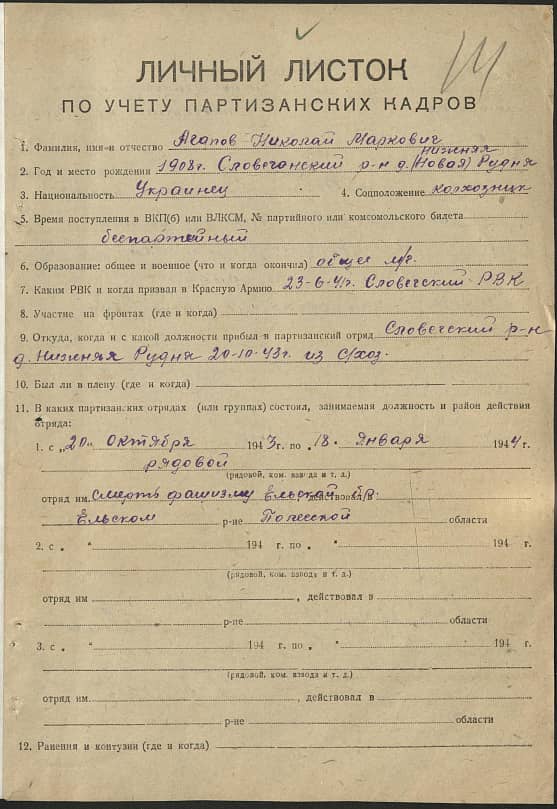 ЛИЧНЫЙ ЛИСТОК
ПО УЧЕТУ ПАРТИЗАНСКИХ КАДРОВ
1. Фамилия, имя и отчество Агапов Николай Маркович
нижняя
2. Год и место рождения 1908г. Словечанский р-н д. (Новая) Рудня
3. Национальность Украинец 4. Соцположение колхозник
5. Время поступления в ВКП(б) или ВЛКСМ, № партийного или комсомольского билета
беспартейный
6. Образование: общее и военное (что и когда окончил) общее
7. Каким РВК и когда призван в Красную Армию 23-6-41г. Словечский РВК
8. Участие на фронтах (где и когда)
9. Откуда, когда и с какой должности прибыл в партизанский отряд Словечский р-н
д. Нижняя Рудня 20-10-43г. из с/хоз.
10. Был ли в плену (где и когда)
11. В каких партизанских отрядах (или группах) состоял, занимаемая должность и район действия
отряда:
1. с „20" Октября 1943г. по „18" января 1944г.
рядовой
(рядовой, ком. взвода и т. д.)
отряд им. Смерть фашизму Ельской бр. действовал в
Ельском р-не Полесской области
2. с „ " 194 г. по „ " 194 г.
(рядовой, ком. взвода и т. д.)
отряд им , действовал в
р-не области
3. с „ " 194 г. по „ " 194 г.
(рядовой, ком. взвода и т. д.)
отряд им. , действовал в
р-не области
12. Ранения и контузии (где и когда)